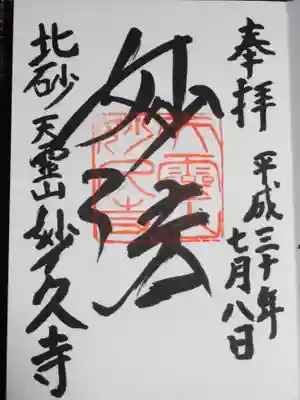 奉拝
平成三十年
七月八日
妙法
北砂 天霊山 妙久寺